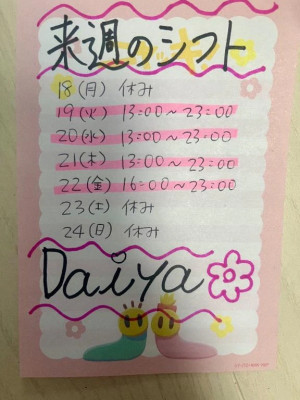 来週のシフト
18(月) 休み
19(火) 13:00〜23:00
20(水) 13:00〜23:00
21(木) 13:00〜23:00
22(金) 16:00〜23:00
23(土) 休み
24(日) 休み
Daiya